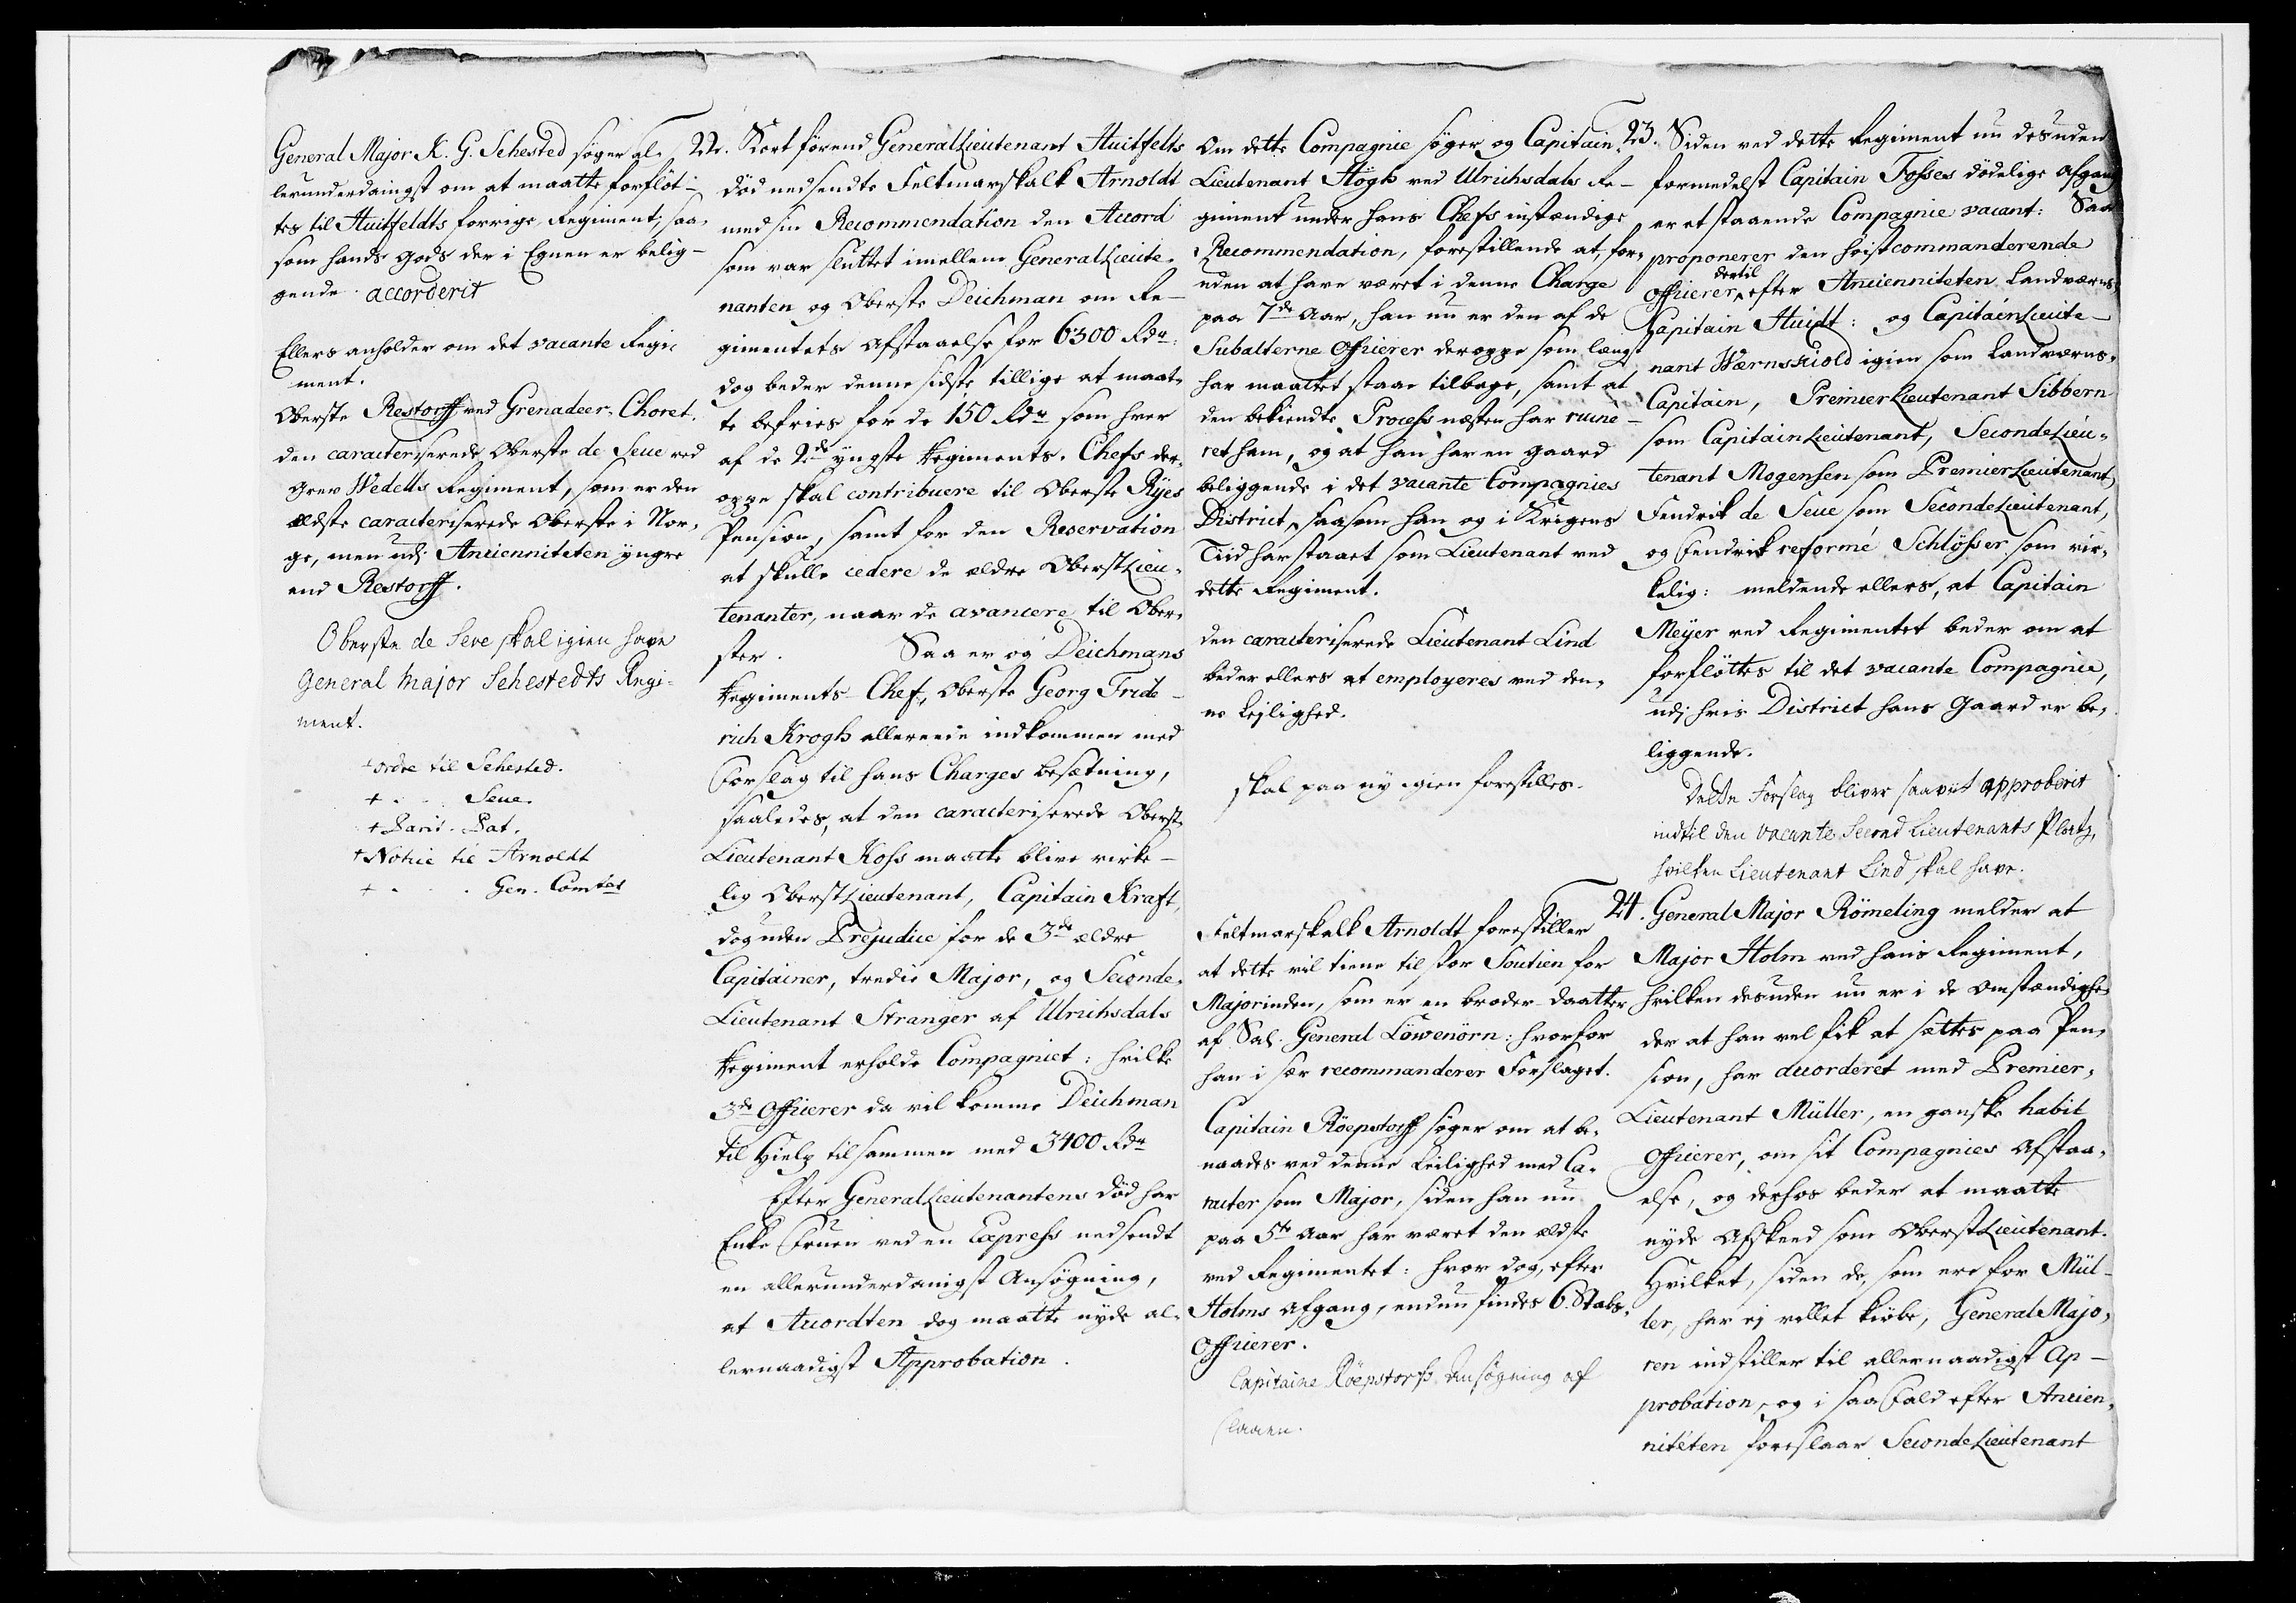 General Major K. G. Sehested søger al-
lerunderdanigst om at maatte forflöt-
tes til Huitfeldts forrige Regiment, saa-
som hands Gods der i Egnen er belig-
gende. accorderit
Ellers anholder om det vacante Regi-
ment.
Oberste Restorff ved Grenadeer-Choret.
den caracteriserede Oberste de Seue ved
Grev Wedells Regiment, som er den
ældste caracteriserede Oberste i Nor-
ge, men udj Ancienniteten yngre
end Restorff.
Oberste de Seve skal igien have
General Major Sehestedts Regi-
ment.
+ ordre til Sehested.
+ . . Seue.
+ Parid. Pat.
+ Notice til Arnoldt
+ . . . Gen. Comtes
22. Kort førend GeneralLieutenant Huitfelts
död nedsendte Feltmarskalk Arnoldt
med sin Recommendation den Accord
som var sluttet imellem GeneralLieute-
nanten og Oberste Deichman om Re-
gimentets Afstaaelse for 6300 Rdr:
dog beder denne sidste tillige at maat-
te befries for de 150 Rdr som hver
af de 2de yngste Regiments-Chefs der-
oppe skal contribuere til Oberste Ryes
Pension, samt for den Reservation
at skulle cedere de ældre OberstLieu-
tenanter, naar de avancere til Ober-
ster. Saa er og Deichmans
Regiments-Chef, Oberste Georg Fride-
rich Krogh allereede indkommen med
Forslag til hans Charges besætning,
saaledes, at den caracteriserede Oberst-
Lieutenant Koss maatte blive virke-
lig OberstLieutenant, Capitain Kraft,
dog uden Præjudice for de 3de ældre
Capitainer, tredie Major, og Seconde-
Lieutenant Stranger af Ulrichsdals
Regiment erholde Compagniet: hvilke
3de Officerer da vil komme Deichman
til Hielp tilsammen med 3400 Rdr
Efter GeneralLieutenantens död har
Enke Fruen ved en Express nedsendt
en allerunderdanigst Ansøgning,
at Accordten dog maatte nyde al-
lernaadigst Approbation.
Om dette Compagnie söger og Capitain-
Lieutenant Høgh ved Ulrichsdals Re-
giment under hans Chefs instændige
Recommendation, forestillende at, for-
uden at have været i denne Charge
paa 7de Aar, han nu er den af de
Subalterne Officerer deroppe som længst
har maattet staae tilbage, samt at
den bekiendte Process næsten har ruine-
ret ham, og at han har en Gaard
beliggende i det vacante Compagnies
District, saasom han og i Krigens
Tiid har staaet som Lieutenant ved
dette Regiment.
den caracteriserede Lieutenant Lind
beder ellers at employeres ved den-
ne Leilighed.
skal paa ny igien forestilles.
Feltmarskalk Arnoldt forestiller
at dette vil tiene til stor Soutien for
Majorinden, som er en broder-daatter
af Sal. General Löwenörn: hvorfor
han i sær recommanderer Forslaget.
Capitain Röepstorff søger om at be-
naades ved denne Leilighed med Ca-
racter som Major, siden han nu
paa 5te Aar har været den ældste
ved Regimentet: hvor dog, efter
Holms afgang, endnu findes 6 Stabs-
Officerer.
Capitaine Röepstorffs Ansøgning af-
slaaen.
23. Siden ved dette Regiment nu desuden
formedelst Capitain Fosses dödelige afgang
er et staaende Compagnie vacant: Saa
proponerer den höistcommanderende
Officerer dertil efter Ancienniteten Landværns-
Capitain Huidt: og CapitainLieute-
nant Wærnskiold igien som Landværns-
Capitain, PremierLieutenant Sibbern
som CapitainLieutenant, SecondeLieu-
tenant Mogensen som PremierLieutenant,
Fendrik de Seue som SecondeLieutenant,
og Fendrik reformé Schlösser som vir-
kelig: meldende ellers, at Capitain
Meyer ved Regimentet beder om at
forflöttes til det vacante Compagnie,
udj hvis District hans Gaard er be-
liggende.
Dette Forslag bliver saavit approberit
indtil den vacante Second Lieutenants Platz,
hvilken Lieutenant Lind skal have.
24. General Major Römeling melder at
Major Holm ved hans Regiment,
hvilken desuden nu er i de Omstændighe-
der at han vel fik at sættes paa Pen-
sion, har accorderet med Premier-
Lieutenant Müller, en ganske habil
Officerer, om sit Compagnies Afstaa-
else, og derhos beder at maatte
nyde Afskeed som OberstLieutenant.
Hvilket, siden de, som ere for Mül-
ler, har ej villet kiöbe, General Majo-
ren indstiller til allernaadigst Ap-
probation, og i saa Fald efter Ancien-
niteten foreslaar SecondeLieutenant